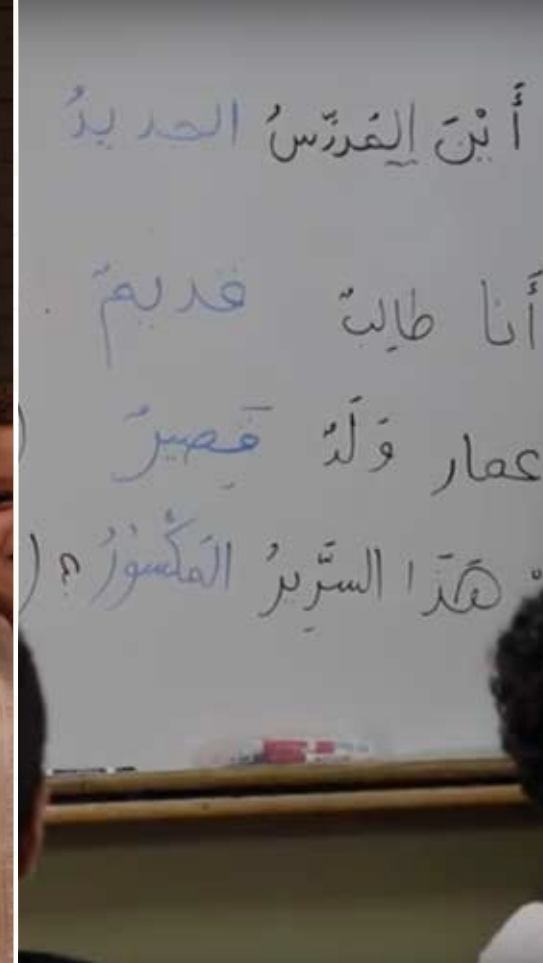 أَيْنَ المُدَرِّسُ الجديدُ
أَنا طالِبٌ قديمٌ
عمار وَلَدٌ قَصِيرٌ
هَذَا السَّرِيرُ المَكْسُورُ؟